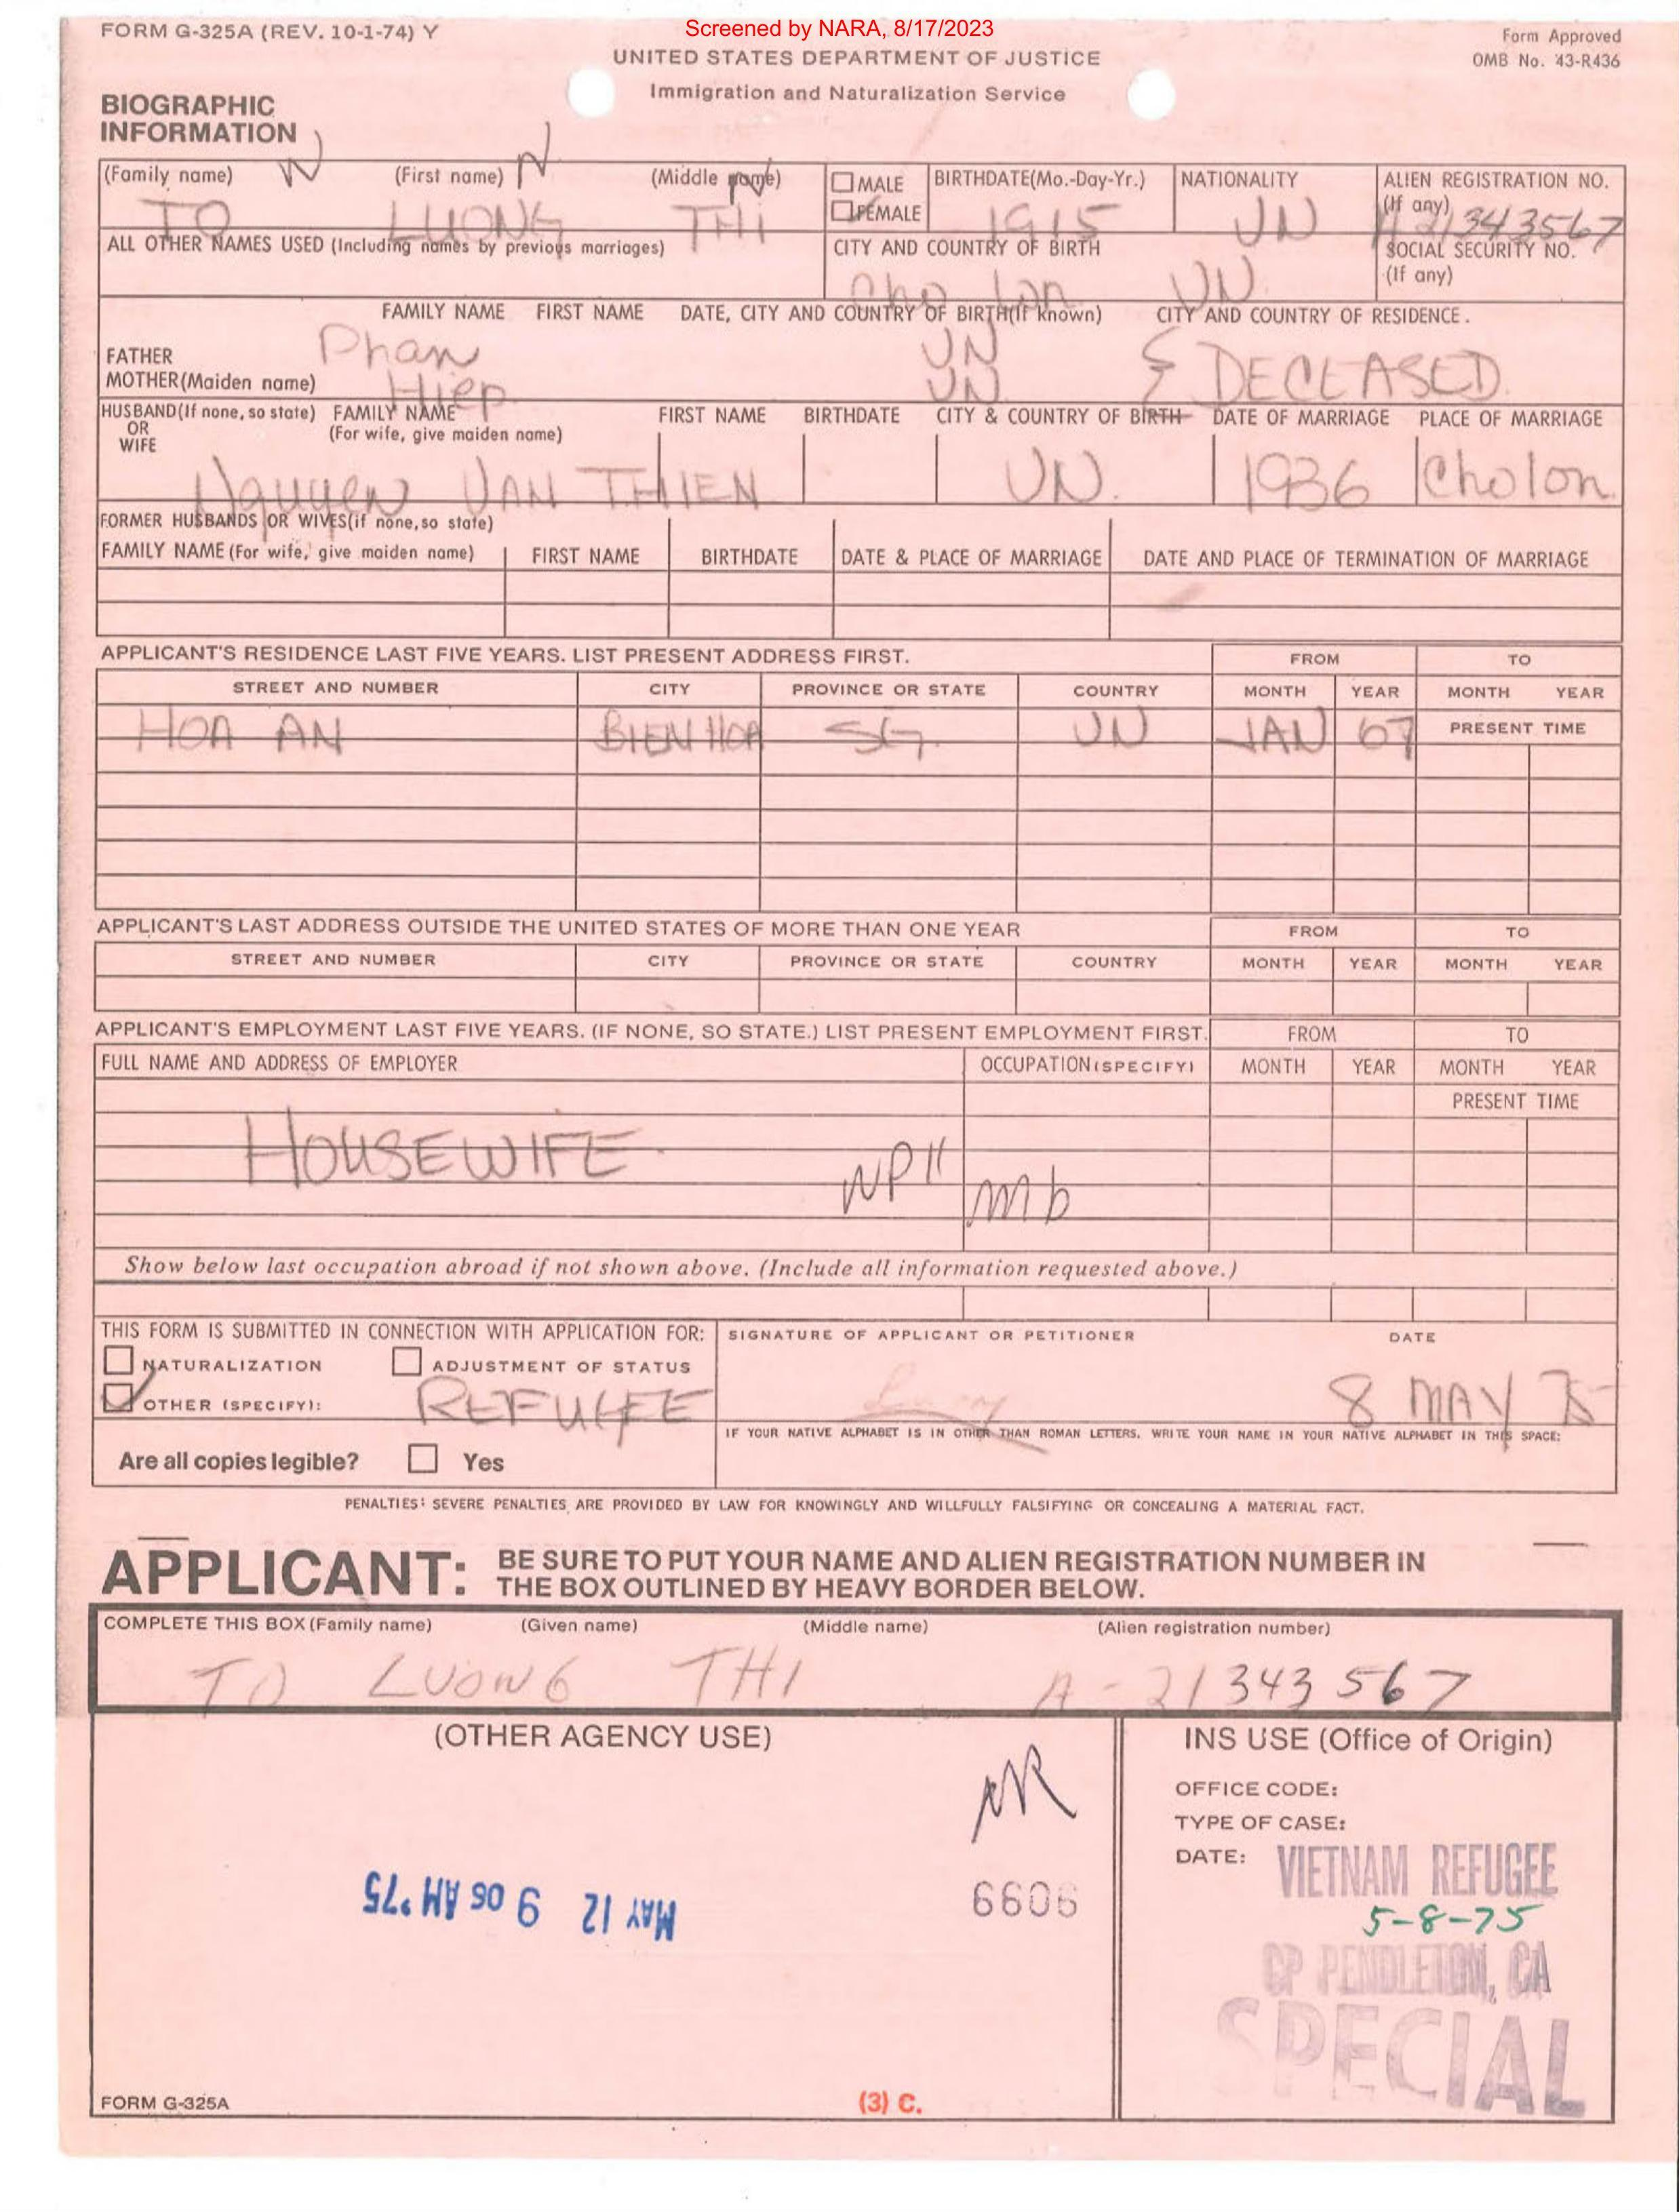 Screened by NARA, 8/17/2023
FORM G-325A (REV. 10-1-74) Y
UNITED STATES DEPARTMENT OF JUSTICE
Form Approved
OMB No. 43-R436
Immigration and Naturalization Service
BIOGRAPHIC
INFORMATION
(Family name) (First name) (Middle name) MALE BIRTHDATE(Mo.-Day-Yr.) NATIONALITY ALIEN REGISTRATION NO.
FEMALE (If any)
TO LUONG THI 1915 VN A 21343567
ALL OTHER NAMES USED (Including names by previous marriages) CITY AND COUNTRY OF BIRTH SOCIAL SECURITY NO.
(If any)
Cho lon VN
FAMILY NAME FIRST NAME DATE, CITY AND COUNTRY OF BIRTH(If known) CITY AND COUNTRY OF RESIDENCE.
FATHER Phan VN } DECEASED
MOTHER(Maiden name) Hiep VN
HUSBAND(If none, so state) FAMILY NAME FIRST NAME BIRTHDATE CITY & COUNTRY OF BIRTH DATE OF MARRIAGE PLACE OF MARRIAGE
OR (For wife, give maiden name)
WIFE
Nguyen VAN THIEN VN. 1936 Cholon
FORMER HUSBANDS OR WIVES(if none,so state)
FAMILY NAME (For wife, give maiden name) FIRST NAME BIRTHDATE DATE & PLACE OF MARRIAGE DATE AND PLACE OF TERMINATION OF MARRIAGE
APPLICANT'S RESIDENCE LAST FIVE YEARS. LIST PRESENT ADDRESS FIRST. FROM TO
STREET AND NUMBER CITY PROVINCE OR STATE COUNTRY MONTH YEAR MONTH YEAR
HOA AN BIEN HOA SG. VN JAN 67 PRESENT TIME
APPLICANT'S LAST ADDRESS OUTSIDE THE UNITED STATES OF MORE THAN ONE YEAR FROM TO
STREET AND NUMBER CITY PROVINCE OR STATE COUNTRY MONTH YEAR MONTH YEAR
APPLICANT'S EMPLOYMENT LAST FIVE YEARS. (IF NONE, SO STATE.) LIST PRESENT EMPLOYMENT FIRST. FROM TO
FULL NAME AND ADDRESS OF EMPLOYER OCCUPATION(SPECIFY) MONTH YEAR MONTH YEAR
PRESENT TIME
HOUSEWIFE
Show below last occupation abroad if not shown above. (Include all information requested above.)
THIS FORM IS SUBMITTED IN CONNECTION WITH APPLICATION FOR: SIGNATURE OF APPLICANT OR PETITIONER DATE
NATURALIZATION ADJUSTMENT OF STATUS
OTHER (SPECIFY): REFUGEE 8 MAY 75
IF YOUR NATIVE ALPHABET IS IN OTHER THAN ROMAN LETTERS, WRITE YOUR NAME IN YOUR NATIVE ALPHABET IN THIS SPACE:
Are all copies legible? Yes
PENALTIES: SEVERE PENALTIES ARE PROVIDED BY LAW FOR KNOWINGLY AND WILLFULLY FALSIFYING OR CONCEALING A MATERIAL FACT.
APPLICANT: BE SURE TO PUT YOUR NAME AND ALIEN REGISTRATION NUMBER IN
THE BOX OUTLINED BY HEAVY BORDER BELOW.
COMPLETE THIS BOX (Family name) (Given name) (Middle name) (Alien registration number)
TO LUONG THI A-21343567
(OTHER AGENCY USE) INS USE (Office of Origin)
NR
OFFICE CODE:
TYPE OF CASE:
DATE: VIETNAM REFUGEE
MAY 12 9 06 AM '75
6606
5-8-75
CP PENDLETON, CA
SPECIAL
FORM G-325A
(3) C.